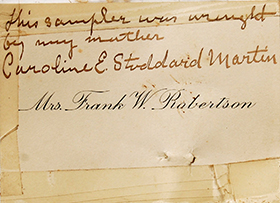 This sampler was wrought
by my mother
Caroline E. Stoddard Martin
Mrs. Frank W. Robertson